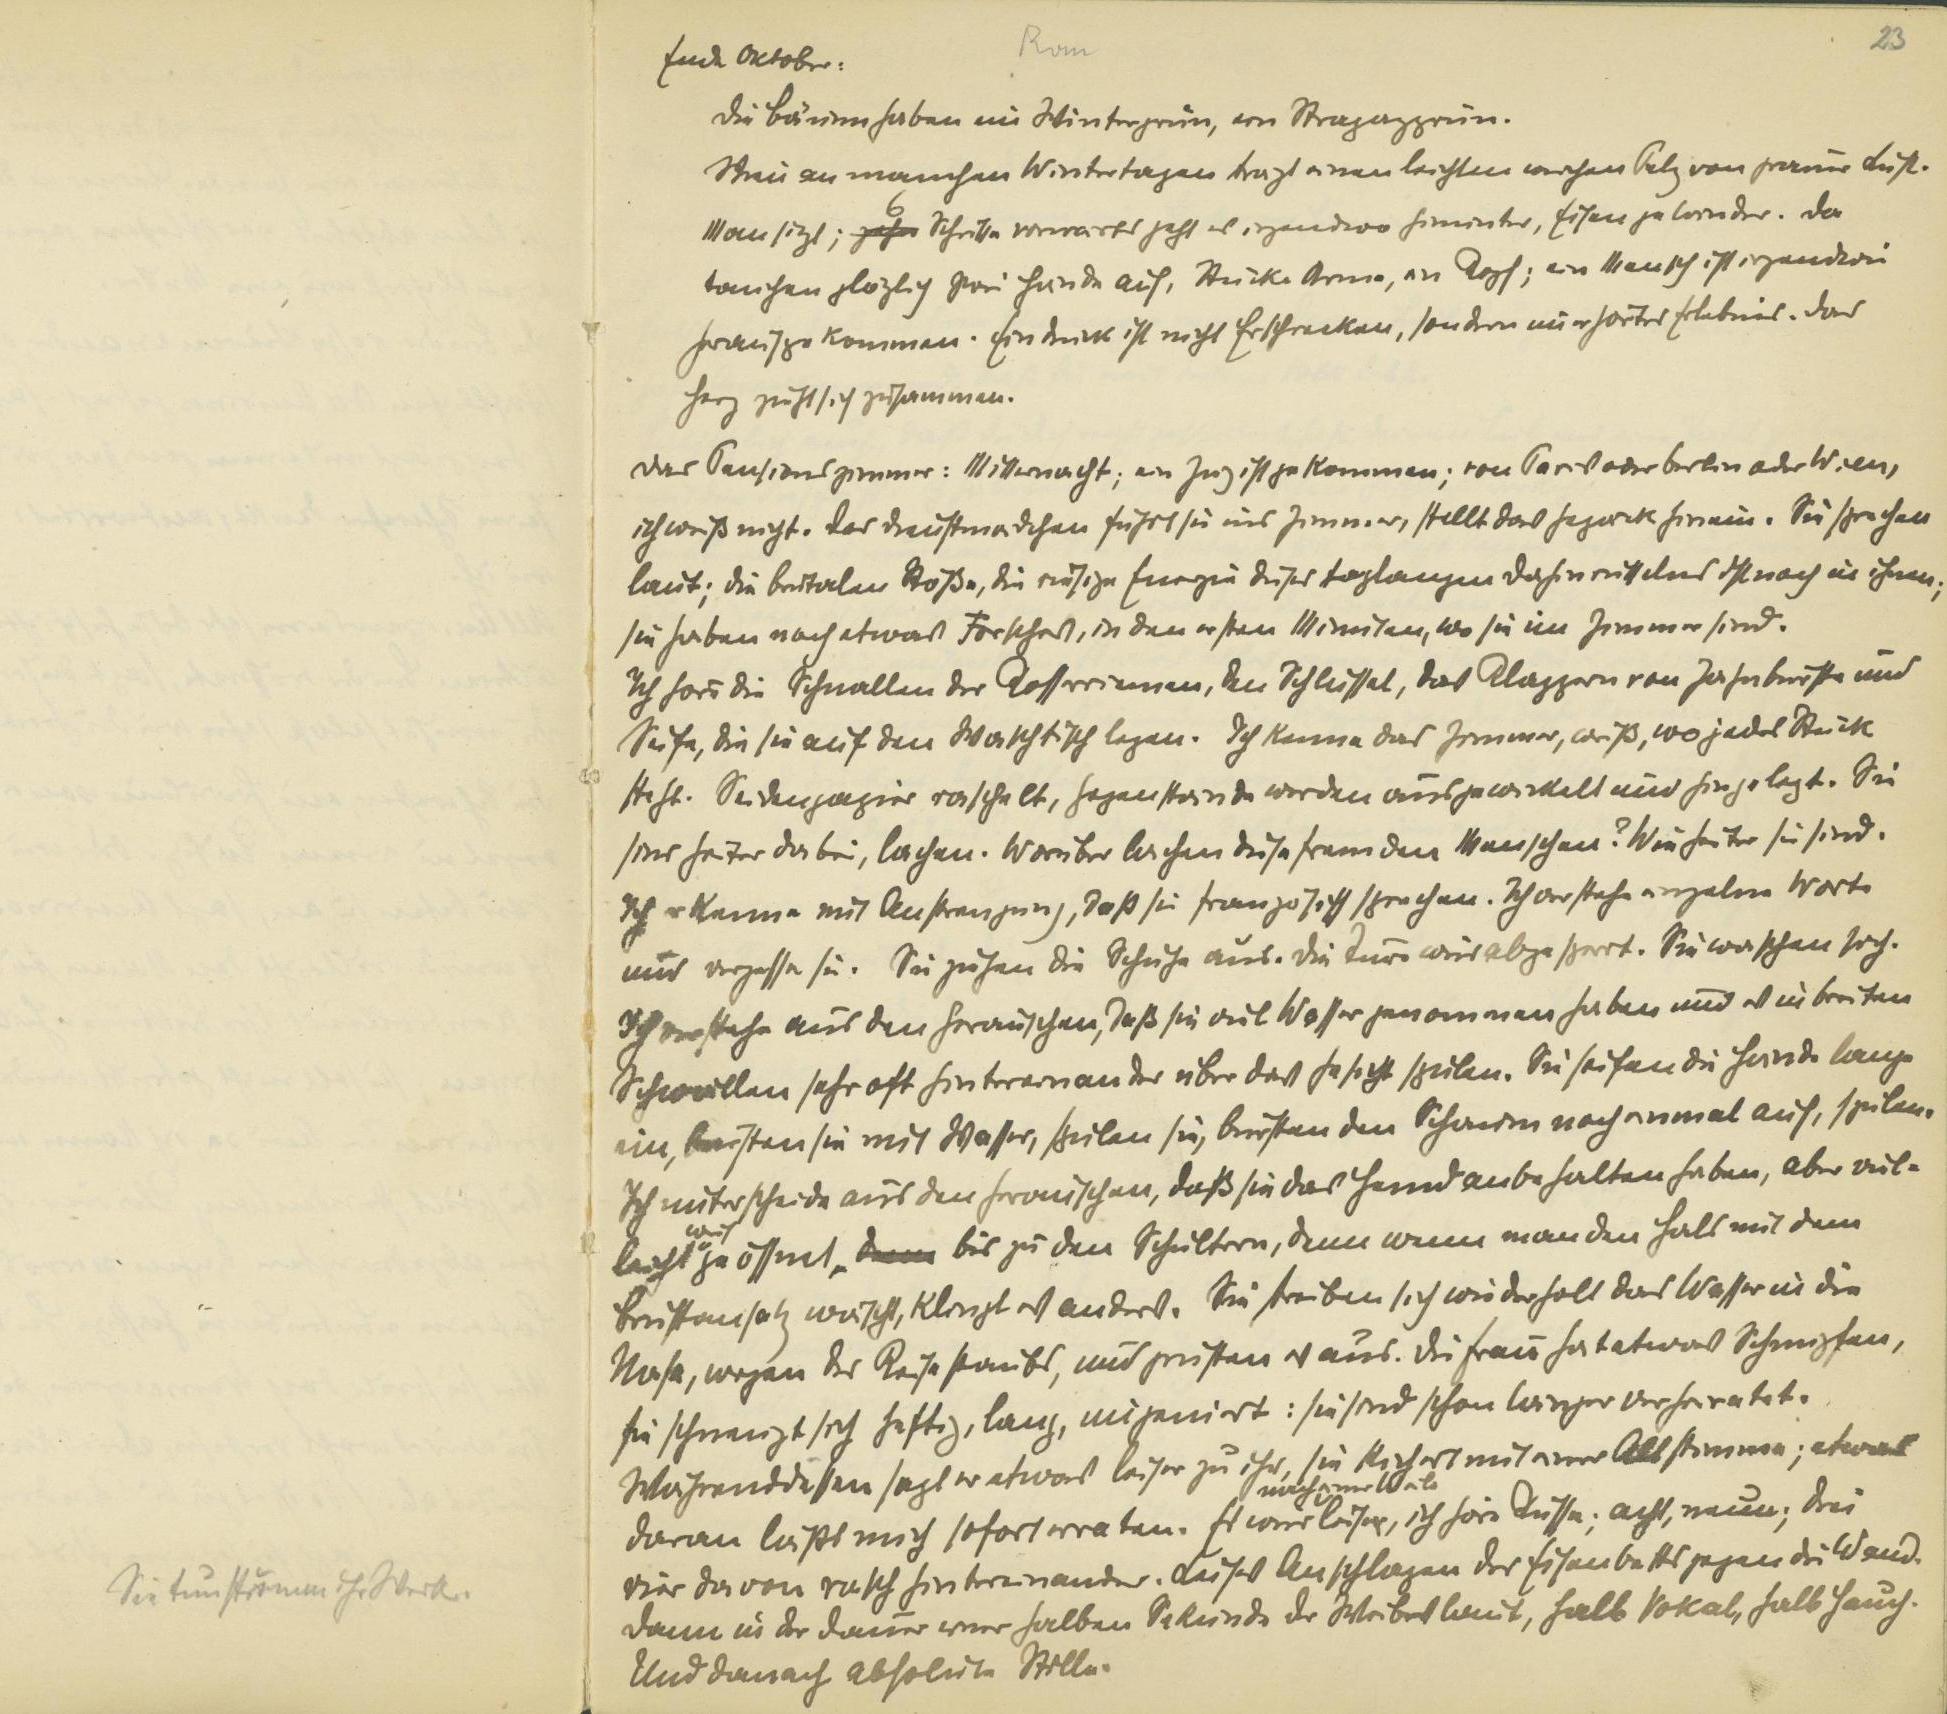 Rom
23
Ende Oktober:
Die Bäume haben ein Wintergrün, ein Strapazgrün.
Stein an manchen Wintertagen trägt einen leichten weichen Pelz von grauer Luft.
6
Man sitzt; zehn Schritte vorwärts geht es irgendwo hinunter, Eisengeländer. Da
tauchen plötzlich zwei Hände auf, Stücke Arme, ein Kopf; ein Mensch ist irgendwie
heraufgekommen. Eindruck ist nicht Erschrecken, sondern unerhörtes Erlebnis. Das
Herz zieht sich zusammen.
Das Pensionszimmer: Mitternacht; ein Zug ist gekommen; von Paris oder Berlin oder Wien,
ich weiß nicht. Das Dienstmädchen führt sie ins Zimmer, stellt das Gepäck hinein. Sie sprechen
laut; die brutalen Stöße, die riesige Energie dieses taglangen Dahinrüttelns ist noch in ihnen;
sie haben noch etwas Forsches, in den ersten Minuten, wo sie im Zimmer sind.
Ich höre die Schnallen der Kofferriemen, den Schlüssel, das Klappern von Zahnbürste und
Seife, die sie auf den Waschtisch legen. Ich kenne das Zimmer, weiß, wo jedes Stück
steht. Seidenpapier raschelt, Gegenstände werden ausgewickelt und hingelegt. Sie
sind heiter dabei, lachen. Worüber lachen diese fremden Menschen? Wie heiter sie sind.
Ich erkenne mit Anstrengung, daß sie französisch sprechen. Ich verstehe einzelne Worte
und vergesse sie. Sie ziehen die Schuhe aus. Die Türe wird abgesperrt. Sie waschen sich.
Ich verstehe aus den Geräuschen, daß sie viel Wasser genommen haben und es in breiten
Schwällen sehr oft hintereinander über das Gesicht spülen. Sie seifen die Hände lange
ein, bürsten sie mit Wasser, spülen sie, bürsten den Schaum noch einmal auf, spülen.
Ich unterscheide aus den Geräuschen, daß sie das Hemd anbehalten haben, aber viel-
weit
leicht geöffnet, denn bis zu den Schultern, denn wenn man den Hals mit dem
Brustansatz wäscht, klingt es anders. Sie treiben sich wiederholt das Wasser in die
Nase, wegen des Reisestaubs, und prusten es aus. Die Frau hat etwas Schnupfen,
sie schneuzt sich heftig, lang, ungeniert: sie sind schon länger verheiratet.
Währenddessen sagt er etwas leiser zu ihr, sie kichert mit einer Altstimme; etwas
nach einer Weile
daran läßt mich sofort erraten. Es wird leiser, ich höre Küsse; acht, neun; drei
vier davon rasch hintereinander. Leises Anschlagen des Eisenbetts gegen die Wand.
Dann in der Dauer einer halben Sekunde der Weibeslaut, halb Vokal, halb Hauch.
Und danach absolute Stille.
Sie tun stumm ihr Werk.